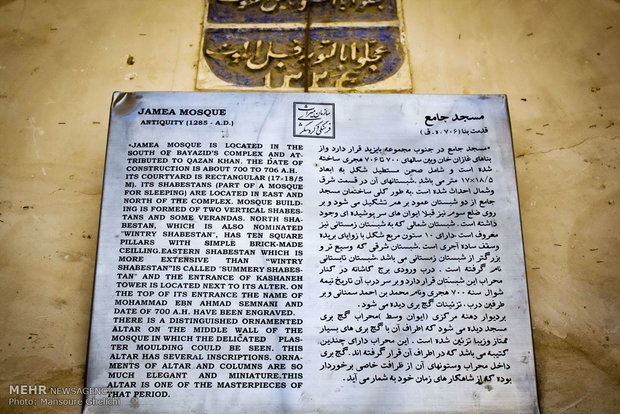 عجلوا بالتوبه قبل الموت
۱۳۲۴
JAMEA MOSQUE
ANTIQUITY (1285 - A.D.)
"JAMEA MOSQUE IS LOCATED IN THE
SOUTH OF BAYAZID'S COMPLEX AND AT-
TRIBUTED TO QAZAN KHAN. THE DATE OF
CONSTRUCTION IS ABOUT 700 TO 706 A.H.
ITS COURTYARD IS RECTANGULAR (17-18/5
M). ITS SHABESTANS (PART OF A MOSQUE
FOR SLEEPING) ARE LOCATED IN EAST AND
NORTH OF THE COMPLEX. MOSQUE BUILD-
ING IS FORMED OF TWO VERTICAL SHABES-
TANS AND SOME VERANDAS. NORTH SHA-
BESTAN, WHICH IS ALSO NOMINATED
"WINTRY SHABESTAN", HAS TEN SQUARE
PILLARS WITH SIMPLE BRICK-MADE
CEILLING.EASTERN SHABESTAN WHICH IS
MORE EXTENSIVE THAN "WINTRY
SHABESTAN"IS CALLED "SUMMERY SHABES-
TAN" AND THE ENTRANCE OF KASHANEH
TOWER IS LOCATED NEXT TO ITS ALTER. ON
THE TOP OF ITS ENTRANCE THE NAME OF
MOHAMMAD EBN AHMAD SEMNANI AND
DATE OF 700 A.H. HAVE BEEN ENGRAVED.
THERE IS A DISTINGUISHED ORNAMENTED
ALTAR ON THE MIDDLE WALL OF THE
MOSQUE IN WHICH THE DELICATED PLAS-
TER MOULDING COULD BE SEEN. THIS
ALTAR HAS SEVERAL INSCRIPTIONS. ORNA-
MENTS OF ALTAR AND COLUMNS ARE SO
MUCH ELEGANT AND MINIATURE.THIS
ALTAR IS ONE OF THE MASTERPIECES OF
THAT PERIOD.
سازمان میراث
فرهنگی و گردشگری
مسجد جامع
قدمت بنا (۷۰۶ ه . ق)
"مسجد جامع در جنوب مجموعه بایزید قرار دارد و از
بناهای غازان خان وبین سالهای ۷۰۰ تا ۷۰۶ هجری ساخته
شده است و شامل صحن مستطیل شکل به ابعاد
۱۷×۱۸/۵ متر می باشد .شبستانهای آن در قسمت شرق
وشمال احداث شده است .به طور کلی ساختمان مسجد
جامع از دو شبستان عمود بر همر تشکیل می شود و بر
روی ضلع سومر نیز قبلا ایوان های سر پوشیده ای وجود
داشته است .شبستان شمالی که به شبستان زمستانی نیز
معروف است .دارای ۱۰ ستون مربع شکل با زوایای بریده
وسقف ساده آجری است .شبستان شرقی که وسیع تر و
بزرگتر از شبستان زمستانی می باشد .شبستان تابستانی
نامر گرفته است . درب ورودی برج کاشانه در کنار
محراب این شبستان قراردارد و بر سر درب آن تاریخ نیمه
شوال سنه ۷۰۰ هجری ونامر محمد بن احمد سمنانی و بر
طرفین درب .تزئینات گچ بری دیده می شود .
بردیوار دهنه مرکزی (ایوان وسط )محراب گچ بری
مسجد دیده می شود که اطراف آن با گچ بری های بسیار
ممتاز وزیبا تزئین شده است . این محراب دارای چندین
کتیبه می باشد که در اطراف آن قرار گرفته اند .گچ بری
داخل محراب وستونهای آن از ظرافت خاصی برخوردار
بوده که از شاهکار های زمان خود به شمار می آید .
MEHR NEWSAGENCY
Photo: Mansoure Ghelichi